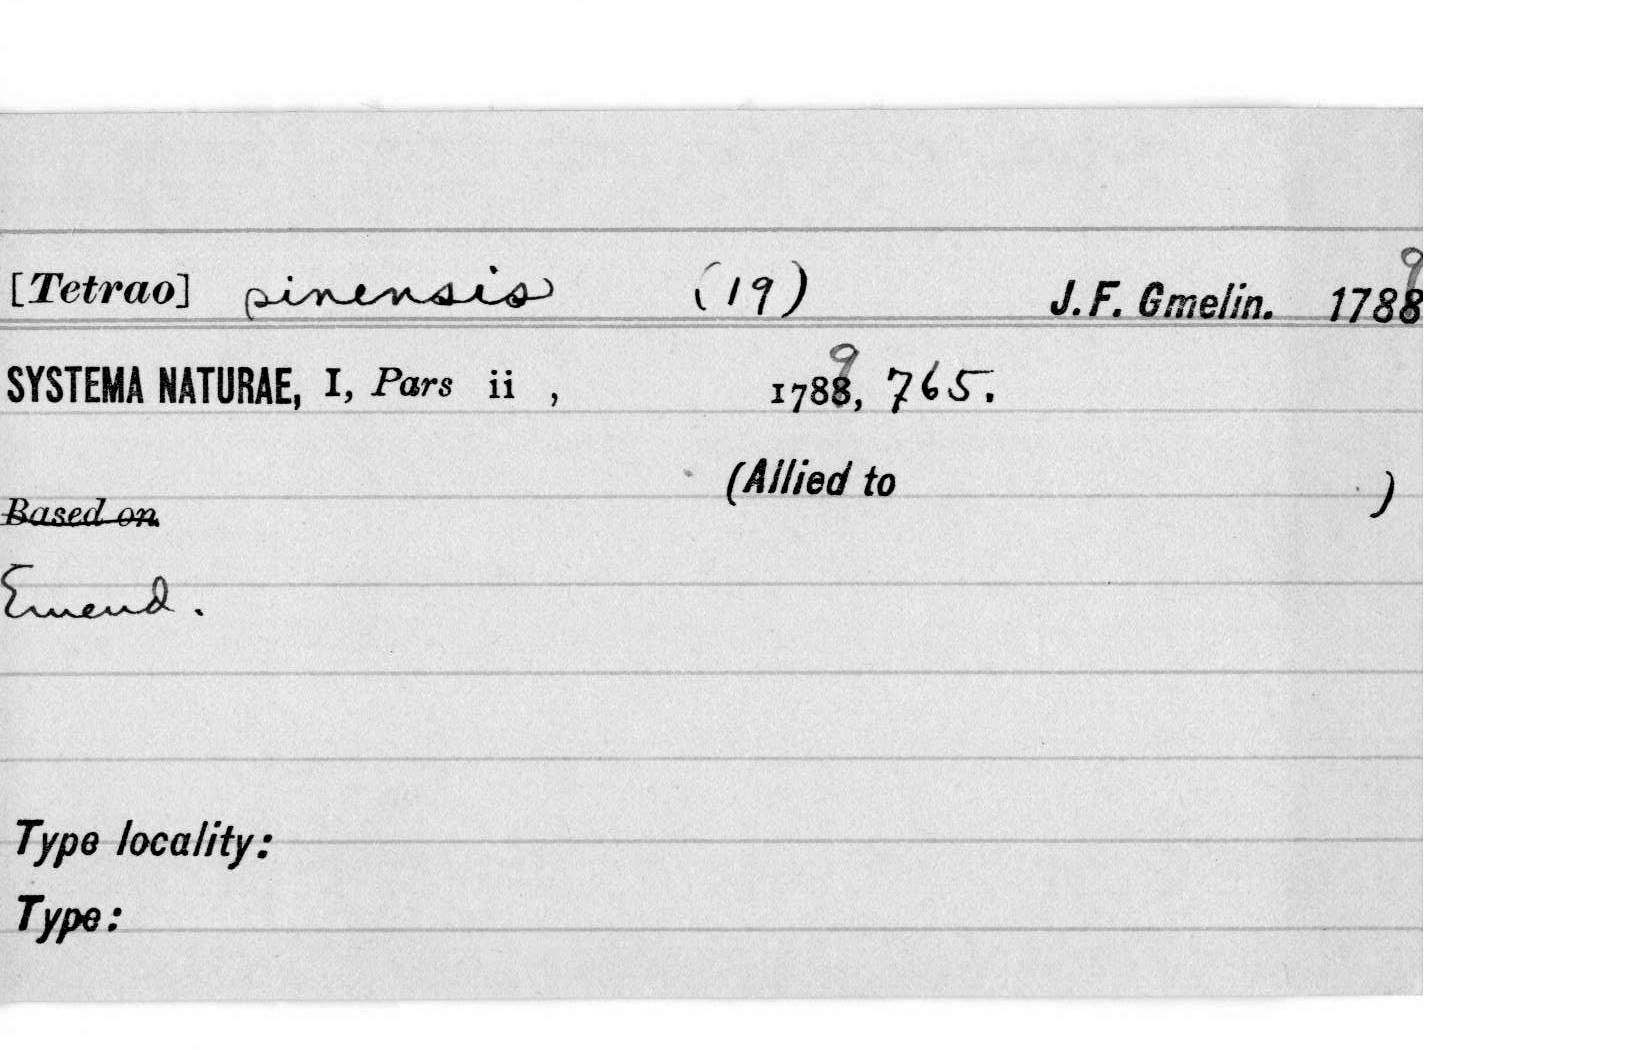 [Tetrao] pinensis (19) J. F. Gmelin. 1788 9
SYSTEMA NATURAE, I, Pars ii , 1788 9, 765.
(Allied to )
Based on
Emend.
Type locality:
Type: